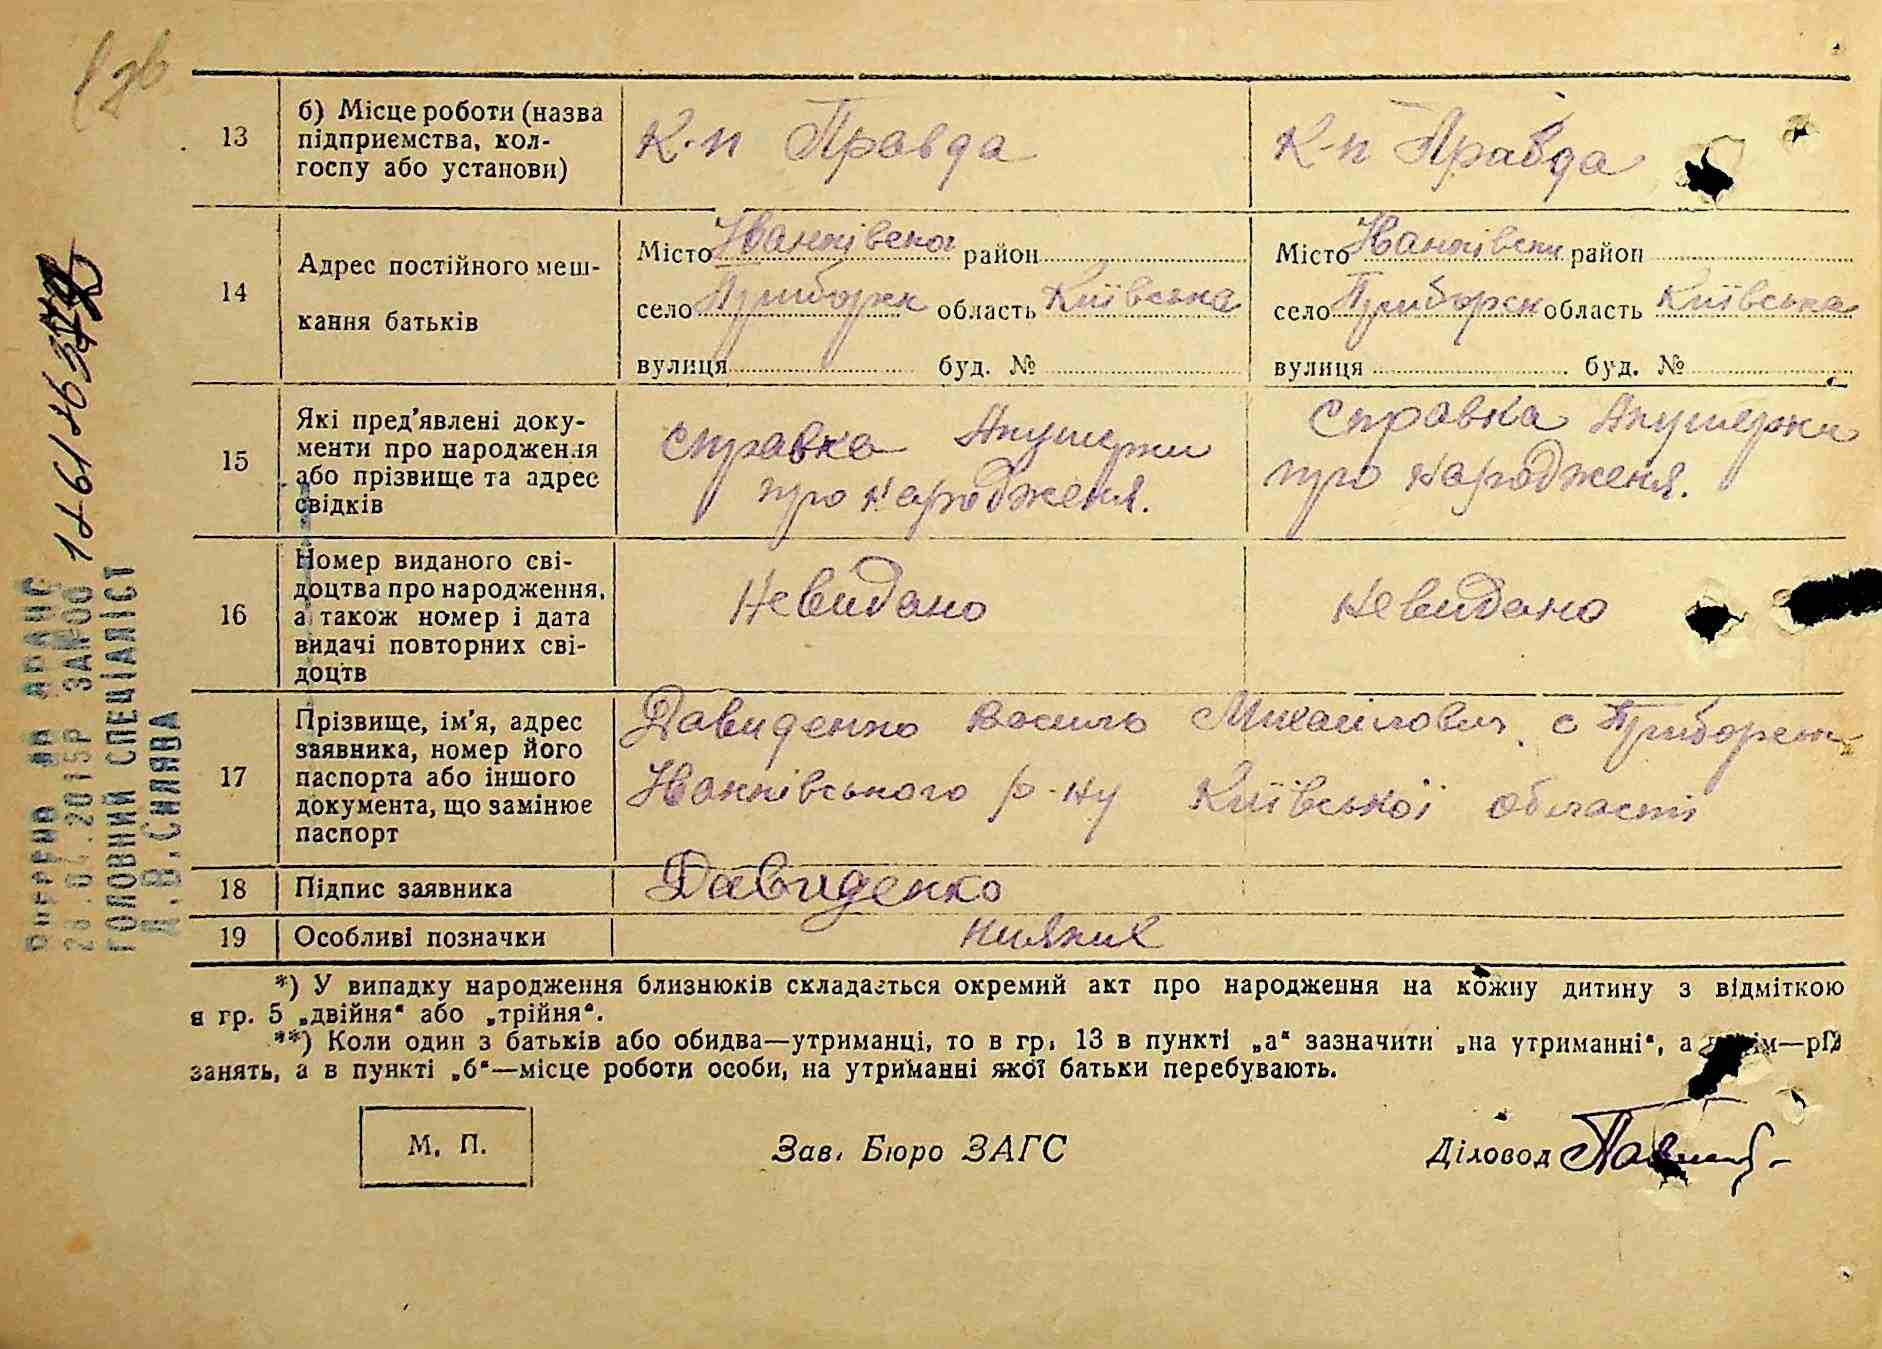 13
б) Місце роботи (назва
підприємства, кол-
госпу або установи)
К-п Правда
К-п Правда
14
Адрес постійного меш-
кання батьків
Місто Іванківська район
село Приборск область Київська
вулиця буд. №
Місто Іванківськ район
село Приборск область Київська
вулиця буд. №
15
Які пред'явлені доку-
менти про народження
або прізвище та адрес
свідків
справка Акушерки
про народженя.
справка Акушерки
про народженя.
16
Номер виданого сві-
доцтва про народження,
а також номер і дата
видачі повторних сві-
доцтв
Невидано
Невидано
17
Прізвище, ім'я, адрес
заявника, номер його
паспорта або іншого
документа, що замінює
паспорт
Давиденко Василь Михайлович с Приборськ
Іванківського р-ну Київської області
18
Підпис заявника
Давиденко
19
Особливі позначки
ниякия
*) У випадку народження близнюків складається окремий акт про народження на кожну дитину з відміткою
в гр. 5 „двійня“ або „трійня“.
**) Коли один з батьків або обидва—утриманці, то в гр. 13 в пункті „а“ зазначити „на утриманні“, а
занять, а в пункті „б“—місце роботи особи, на утриманні якої батьки перебувають.
М. П.
Зав. Бюро ЗАГС
Діловод
ГОЛОВНИЙ СПЕЦІАЛІСТ
Д.В.Силява